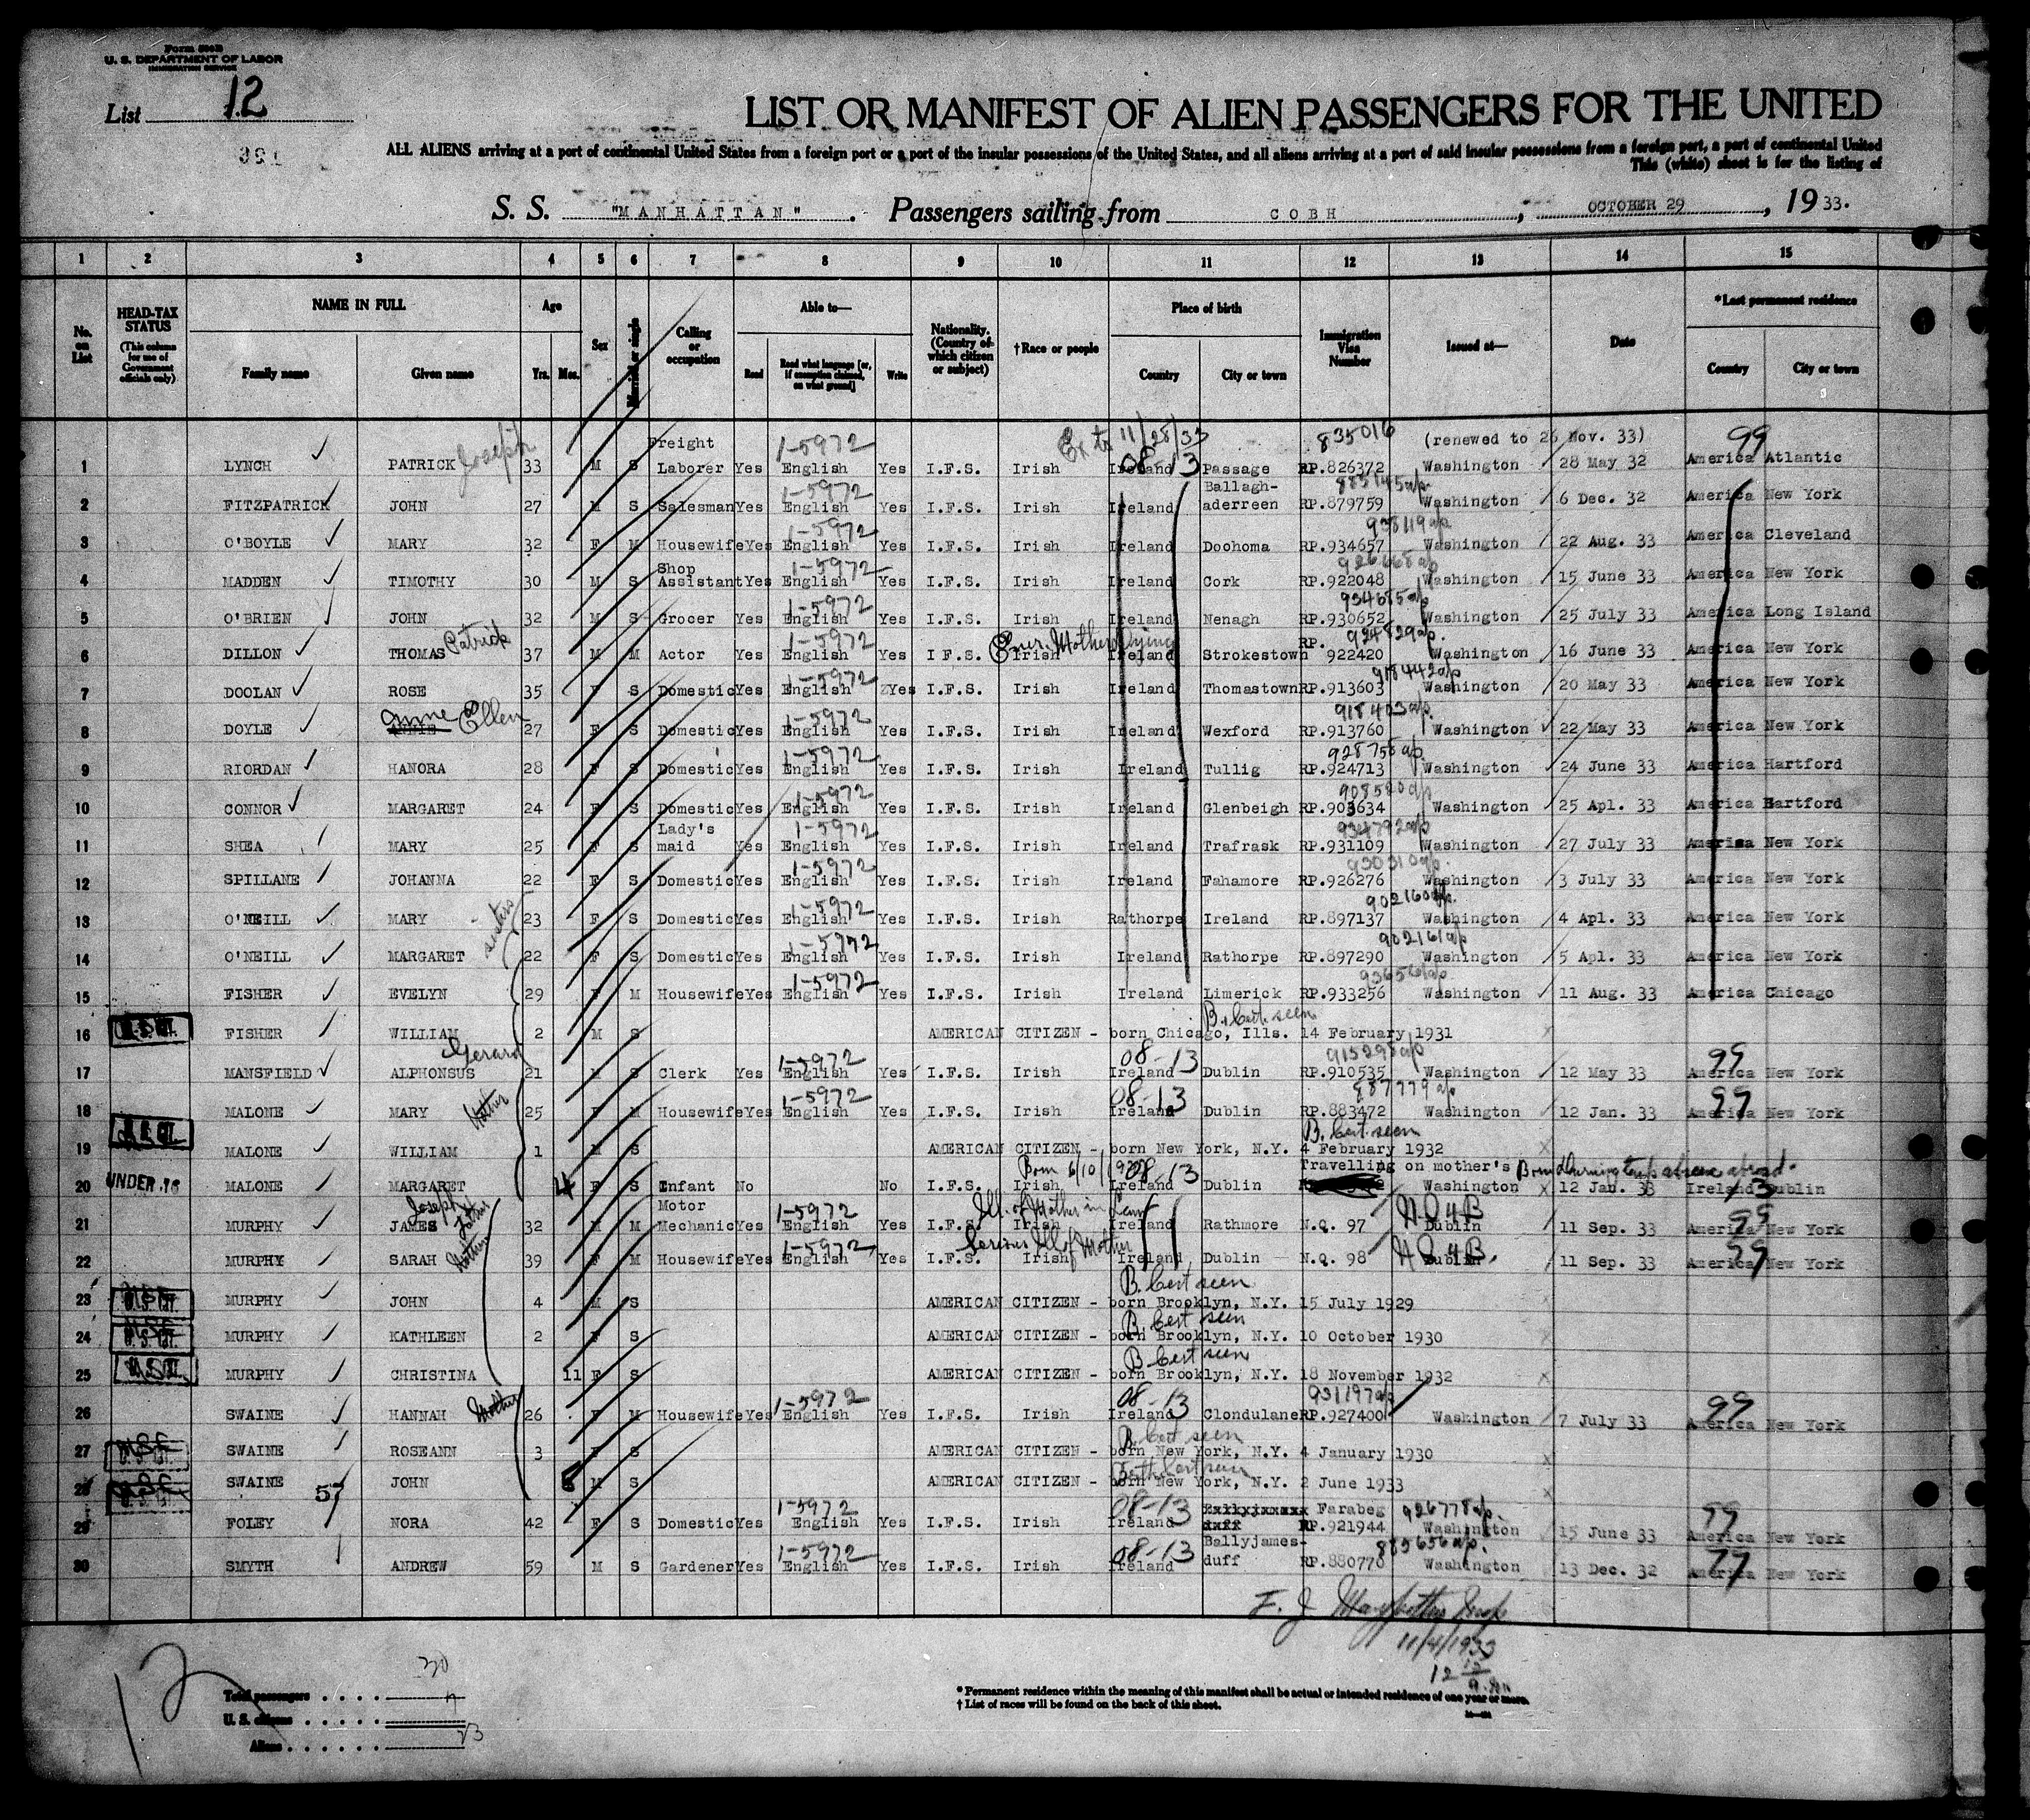 Form 500B
U. S. DEPARTMENT OF LABOR
IMMIGRATION SERVICE
List 12
LIST OR MANIFEST OF ALIEN PASSENGERS FOR THE UNITED
ALL ALIENS arriving at a port of continental United States from a foreign port or a port of the insular possessions of the United States, and all aliens arriving at a port of said insular possessions from a foreign port, a port of continental United
This (white) sheet is for the listing of
S. S. "MANHATTAN". Passengers sailing from COBH, OCTOBER 29, 1933.
1 2 3 4 5 6 7 8 9 10 11 12 13 14 15
No. on List
HEAD-TAX STATUS (This column for use of Government officials only)
NAME IN FULL Family name Given name
Age Yrs. Mos.
Sex
Married or single
Calling or occupation
Able to— Read Read what language [or, if exemption claimed, on what ground] Write
Nationality. (Country of which citizen or subject)
†Race or people
Place of birth Country City or town
Immigration Visa Number
Issued at—
Date
*Last permanent residence Country City or town
Freight 1-5972 Ex to 11/28/33 835016 (renewed to 26 Nov. 33) 99
1 LYNCH PATRICK Joseph 33 M S Laborer Yes English Yes I.F.S. Irish Ireland 08-13 Passage RP.826372 Washington 28 May 32 America Atlantic
1-5972 Ballagh-
2 FITZPATRICK JOHN 27 M S Salesman Yes English Yes I.F.S. Irish Ireland aderreen RP.879759 Washington 6 Dec. 32 America New York
1-5972 938119 a/p
3 O'BOYLE MARY 32 F M Housewife Yes English Yes I.F.S. Irish Ireland Doohoma RP.934657 Washington 22 Aug. 33 America Cleveland
Shop 1-5972 926668 a/p
4 MADDEN TIMOTHY 30 M S Assistant Yes English Yes I.F.S. Irish Ireland Cork RP.922048 Washington 15 June 33 America New York
1-5972 934685 a/p
5 O'BRIEN JOHN 32 M S Grocer Yes English Yes I.F.S. Irish Ireland Nenagh RP.930652 Washington 25 July 33 America Long Island
Patrick 1-5972 Mother dying RP. 924829 a/p.
6 DILLON THOMAS 37 M M Actor Yes English Yes I F.S. Irish Ireland Strokestown 922420 Washington 16 June 33 America New York
1-5972 918442 a/p
7 DOOLAN ROSE 35 F S Domestic Yes English Yes I.F.S. Irish Ireland Thomastown RP.913603 Washington 20 May 33 America New York
Anne Ellen 1-5972 918403 a/p.
8 DOYLE ANNIE 27 F S Domestic Yes English Yes I.F.S. Irish Ireland Wexford RP.913760 Washington 22 May 33 America New York
1-5972 928758 a/p
9 RIORDAN HANORA 28 F S Domestic Yes English Yes I.F.S. Irish Ireland Tullig RP.924713 Washington 24 June 33 America Hartford
1-5972 908580 a/p
10 CONNOR MARGARET 24 F S Domestic Yes English Yes I.F.S. Irish Ireland Glenbeigh RP.903634 Washington 25 Apl. 33 America Hartford
Lady's 1-5972 934792 a/p
11 SHEA MARY 25 F S maid Yes English Yes I.F.S. Irish Ireland Trafrask RP.931109 Washington 27 July 33 America New York
1-5972 930310 a/p.
12 SPILLANE JOHANNA 22 F S Domestic Yes English Yes I.F.S. Irish Ireland Fahamore RP.926276 Washington 3 July 33 America New York
sisters 1-5972 902160 a/p.
13 O'NEILL MARY 23 F S Domestic Yes English Yes I.F.S. Irish Rathorpe Ireland RP.897137 Washington 4 Apl. 33 America New York
1-5972 902161 a/p
14 O'NEILL MARGARET 22 F S Domestic Yes English Yes I.F.S. Irish Ireland Rathorpe RP.897290 Washington 5 Apl. 33 America New York
1-5972
15 FISHER EVELYN 29 F M Housewife Yes English Yes I.F.S. Irish Ireland Limerick RP.933256 Washington 11 Aug. 33 America Chicago
B. Cert. seen
16 FISHER WILLIAM 2 M S AMERICAN CITIZEN - born Chicago, Ills. 14 February 1931
Gerard 1-5972 08-13 915295 a/p 99
17 MANSFIELD ALPHONSUS 21 M S Clerk Yes English Yes I.F.S. Irish Ireland Dublin RP.910535 Washington 12 May 33 America New York
Mother 1-5972 08-13 887779 a/p 99
18 MALONE MARY 25 F M Housewife Yes English Yes I.F.S. Irish Ireland Dublin RP.883472 Washington 12 Jan. 33 America New York
B. Cert seen
19 MALONE WILLIAM 1 M S AMERICAN CITIZEN - born New York, N.Y. 4 February 1932
Born 6/10/1933 08-13 Travelling on mother's Born during temp absence abroad.
20 UNDER 16 MALONE MARGARET 4 F S Infant No No I.F.S. Irish Ireland Dublin Washington 12 Jan. 33 Ireland Dublin 13
Joseph Father Motor 1-5972 Ill. of Mother in Law H.Q 4 B 99
21 MURPHY JAMES 32 M M Mechanic Yes English Yes I.F.S. Irish Ireland Rathmore N.Q. 97 Dublin 11 Sep. 33 America New York
Mother 1-5972 Serious Ill of Mother 4 B. 99
22 MURPHY SARAH 39 F M Housewife Yes English Yes I.F.S. Irish Ireland Dublin N.Q. 98 Dublin 11 Sep. 33 America New York
B. Cert seen
23 MURPHY JOHN 4 M S AMERICAN CITIZEN - born Brooklyn, N.Y. 15 July 1929
B. Cert seen
24 MURPHY KATHLEEN 2 F S AMERICAN CITIZEN - born Brooklyn, N.Y. 10 October 1930
B. Cert seen
25 MURPHY CHRISTINA 11 F S AMERICAN CITIZEN - born Brooklyn, N.Y. 18 November 1932
Mother 1-5972 08-13 931197 a/p 99
26 SWAINE HANNAH 26 F M Housewife Yes English Yes I.F.S. Irish Ireland Clondulane RP.927400 Washington 7 July 33 America New York
B. Cert seen
27 SWAINE ROSEANN 3 F S AMERICAN CITIZEN - born New York, N.Y. 4 January 1930
Birth Cert seen
28 SWAINE JOHN 57 M S AMERICAN CITIZEN - born New York, N.Y. 2 June 1933
1-5972 08-13 Farabeg 926778 a/p. 99
29 FOLEY NORA 42 F S Domestic Yes English Yes I.F.S. Irish Ireland RP.921944 Washington 15 June 33 America New York
1-5972 08-13 Ballyjames- 885656 a/p. 99
30 SMYTH ANDREW 59 M S Gardener Yes English Yes I.F.S. Irish Ireland duff RP.880770 Washington 13 Dec. 32 America New York
F. J.
11/4/1933
12
Total passengers . . . . 30
U. S. citizens . . . . . 7
Aliens . . . . . . 23
* Permanent residence within the meaning of this manifest shall be actual or intended residence of one year or more.
† List of races will be found on the back of this sheet.